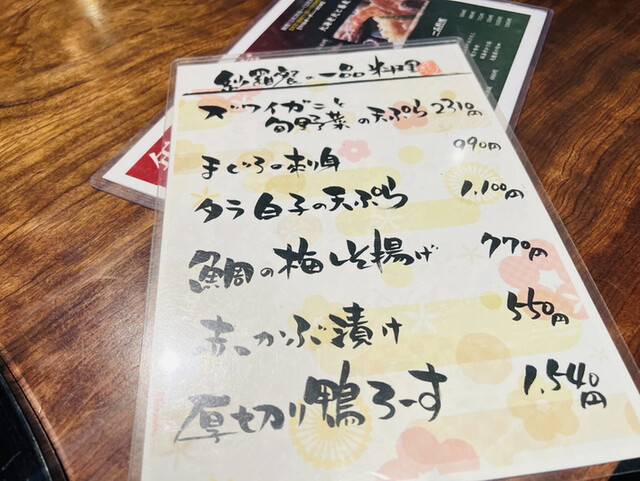 紗羅餐の一品料理
ズワイガニと
旬野菜の天ぷら 2310円
まぐろの刺身 990円
タラ白子の天ぷら 1.100円
鯛の梅しそ揚げ 770円
赤かぶ漬け 550円
厚切り鴨ろーす 1.540円